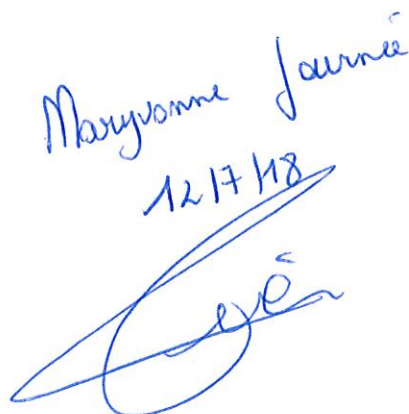 Maryvonne Journée
12/7/18